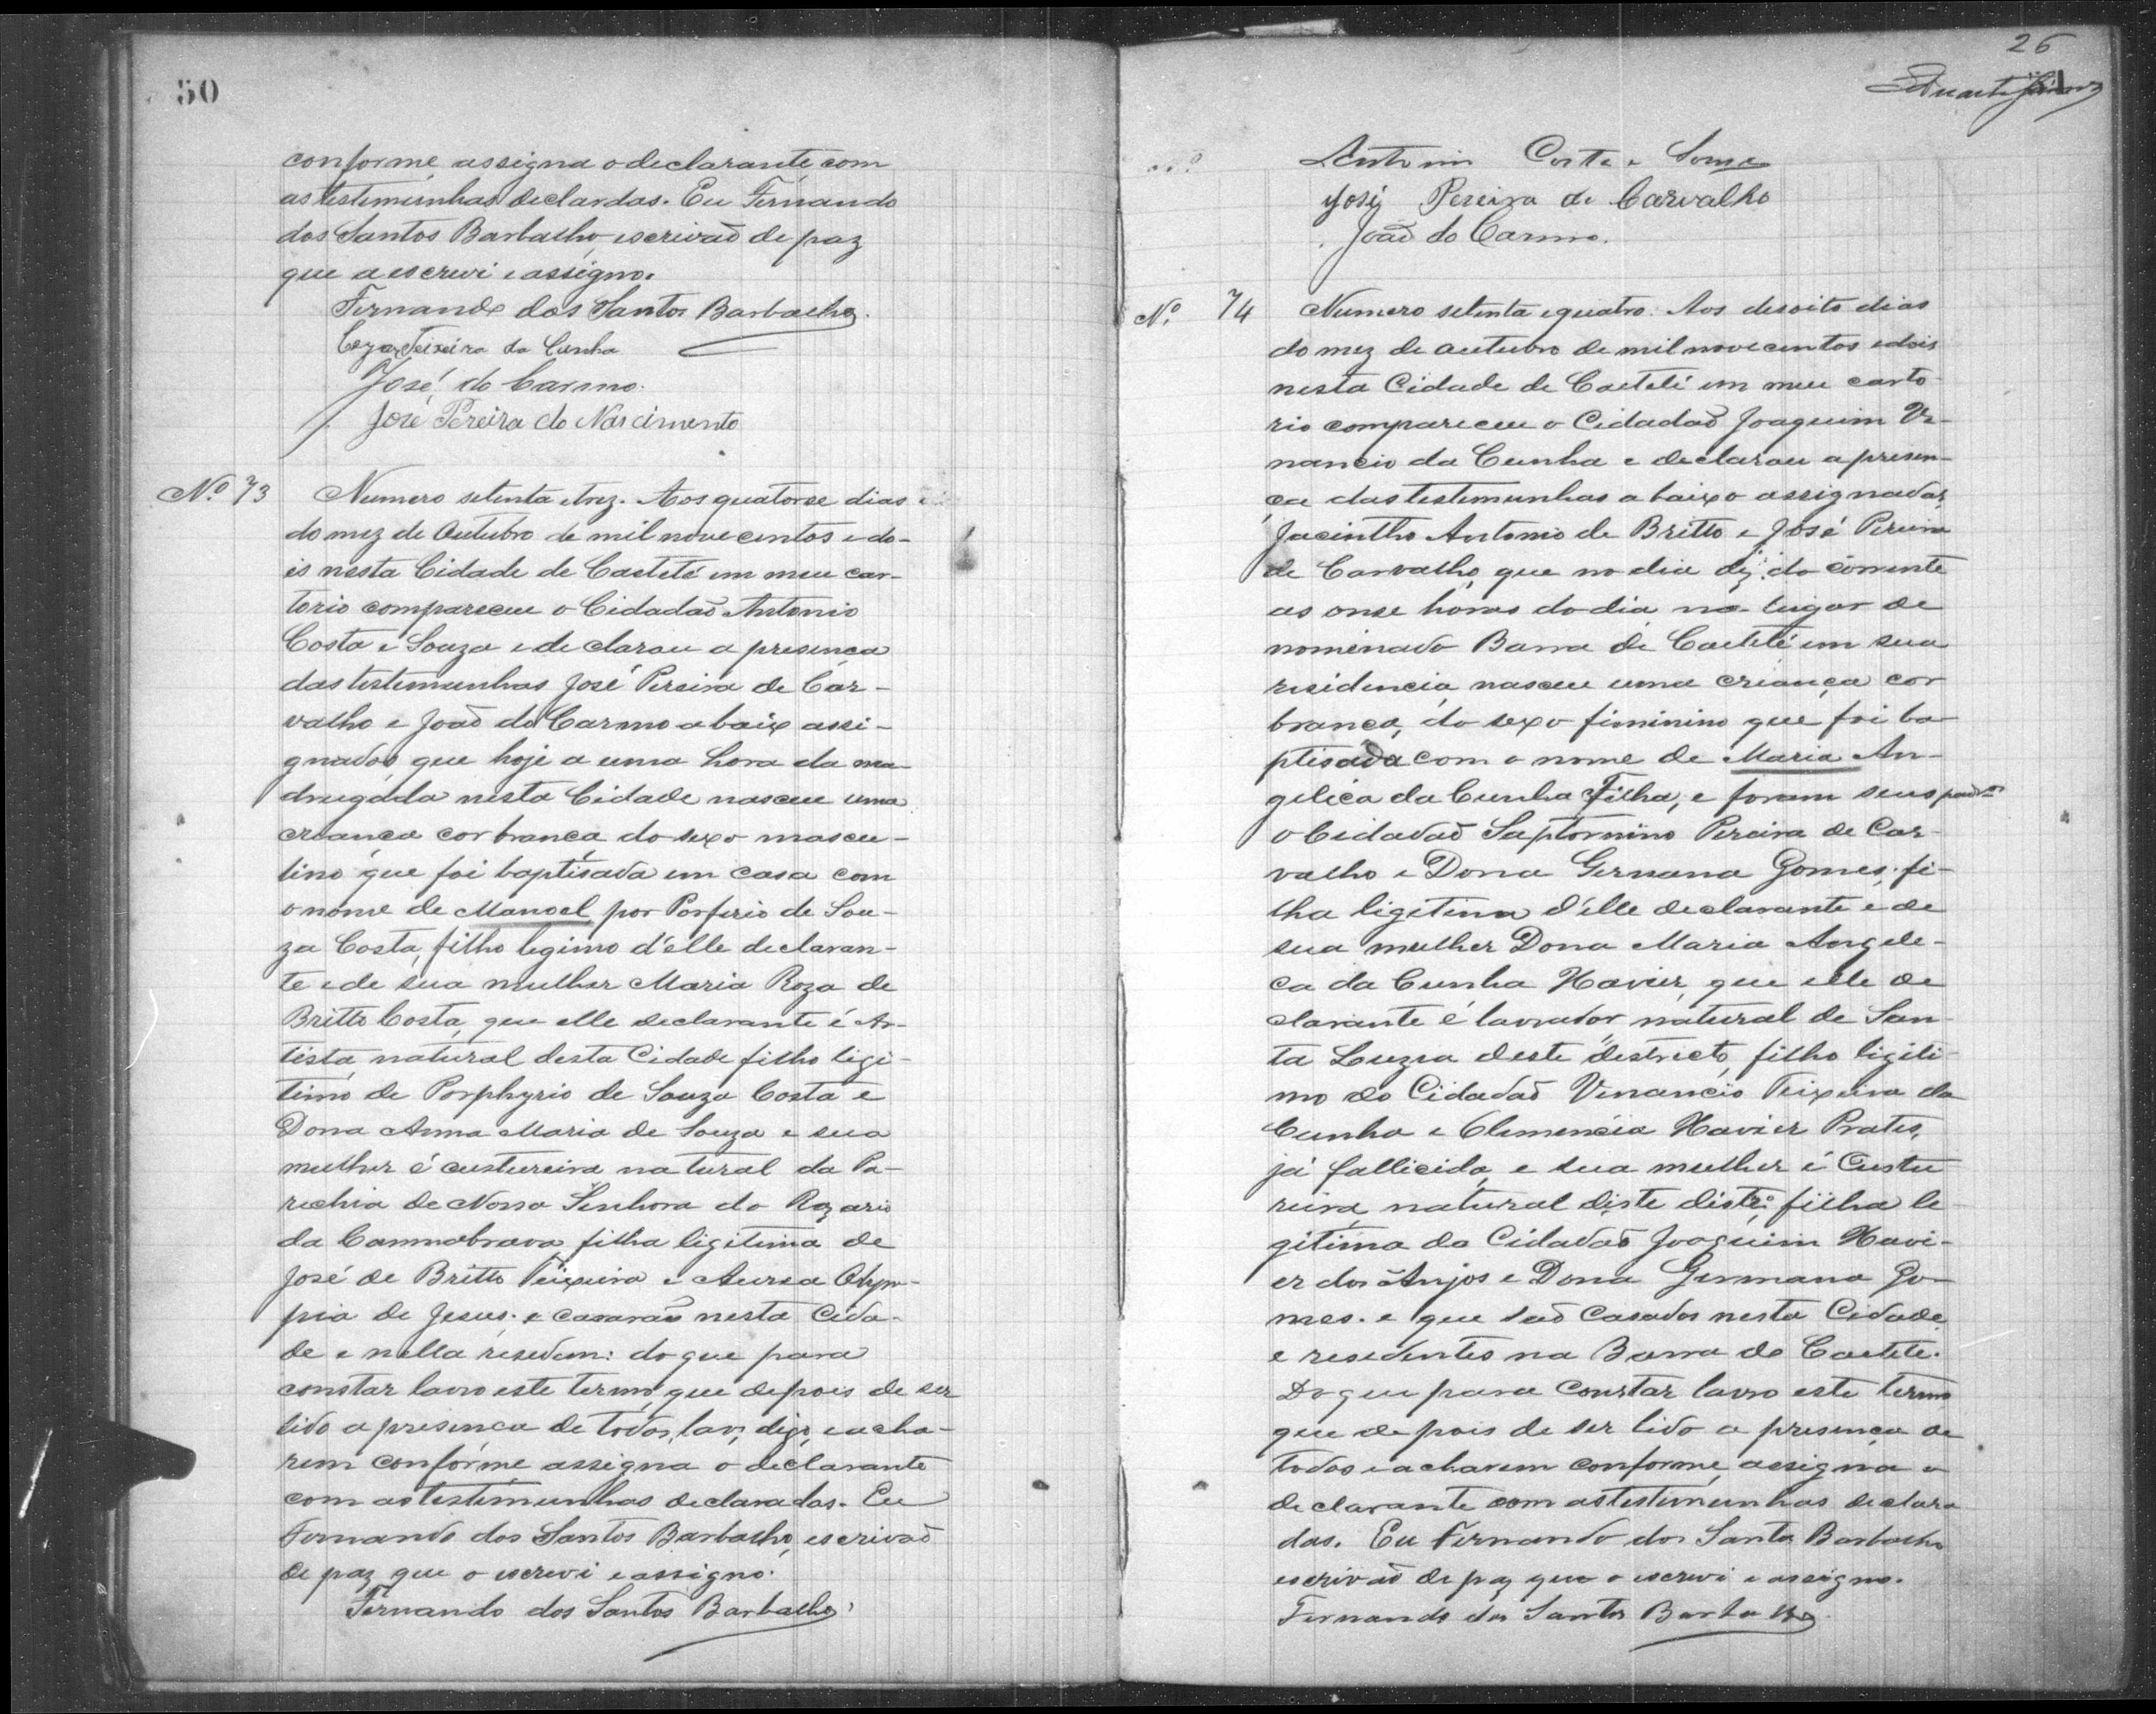 50
conforme assigna o declarante com
as testemunhas declardas. Eu Fernando
dos Santos Barbalho, escrivaõ de paz
que a escrevi e assigno.
Fernando dos Santos Barbalho.
Cezar Teixeira da Cunha
José do Carmo.
José Pereira do Nascimento
N.o 73 Numero setenta e trez. Aos quatorse dias
do mez de Outubro de mil novecentos e do-
is nesta Cidade de Caeteté em meu car-
torio compareceu o Cidadaõ Antonio
Costa e Souza e declarou a presença
das testemunhas José Pereira de Car-
valho e Joaõ do Carmo abaix assi-
gnados, que hoje a uma hora da ma-
drugada nesta Cidade nasceu uma
creança cor branca, do sexo mascu-
lino que foi baptisada em casa com
o nome de Manoel, por Porfirio de Sou-
za Costa, filho legimo d'elle declaran-
te e de sua mulher Maria Roza de
Britto Costa, que elle declarante é Ar-
tista, natural desta Cidade filho ligi-
timo de Porphyrio de Souza Costa e
Dona Anna Maria de Souza e sua
mulher é custureira natural da Pa-
rochia de Nossa Senhora do Rozario
da Cannabrava, filha ligitima de
José de Britto Teixeira e Aurea Olym-
pia de Jesus. e casaraõ nesta Cida-
de e nella residem: do que para
constar lavro este termo, que depois de ser
lido a presença de todos, lav, digo, e acha-
rem conforme assigna o declarante
com as testemunhas declaradas. Eu
Fernando dos Santos Barbalho, escrivaõ
de paz que o escrevi e assigno.
Fernando dos Santos Barbalho
26
51
Antonio Costa e Souza
José Pereira de Carvalho
Joaõ do Carmo.
N.o 74 Numero setenta e quatro. Aos desoito dias
do mez de outubro de mil novecentos e dois
nesta Cidade de Caeteté em meu carto
rio compareceu o Cidadaõ Joaquim Ve-
nancio da Cunha e declarou a presen-
ça das testemunhas abaixo assignadas,
Jacintho Antonio de Britto e José Pereira
de Carvalho, que no dia dez do corrente
as onse horas do dia, no lugar de
nominado Barra de Caeteté em sua
residencia, nasceu uma criança cor
branca, do sexo fiminino que foi ba
ptisada com o nome de Maria An-
gelica da Cunha Filha, e foram seus padros
o Cidadaõ Saptornino Pereira de Car-
valho e Dona Germana Gomes. fi-
lha ligitima d'elle declarante e de
sua mulher Dona Maria Angele-
ca da Cunha Xavier, que elle de
clarante é lavrador, natural de San
ta Luzia deste destricto, filho ligiti
mo do Cidadaõ Venancio Teixeira da
Cunha e Clemencia Xavier Prates,
já fallicida, e sua mulher é Custu
reira, natural diste distr.o filha le
gitima do Cidadaõ Joaquim Xavi-
er dos Anjos e Dona Germana Go-
mes. e que saõ Casados nesta Cidade
e residentes na Barra do Caetete.
Do que para constar lavro este termo
que depois de ser lido a presença de
todos e acharem conforme, assigna o
declarante com as testemunhas declara
das. Eu Fernando dos Santos Barbalho
escrivaõ de paz que o escrevi e assigno.
Fernando dos Santos Barbalho